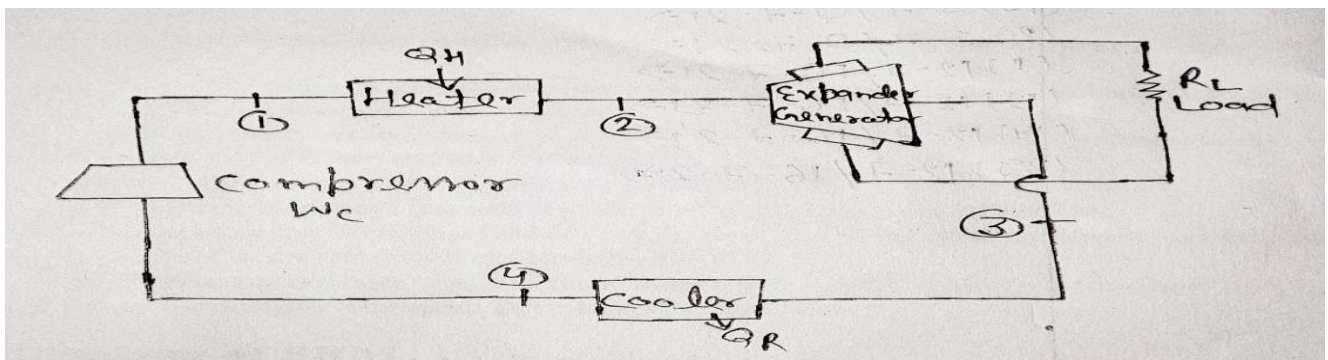 QH
Heater
①
②
Expander
Generator
RL
Load
Compressor
Wc
③
④
Cooler
QR